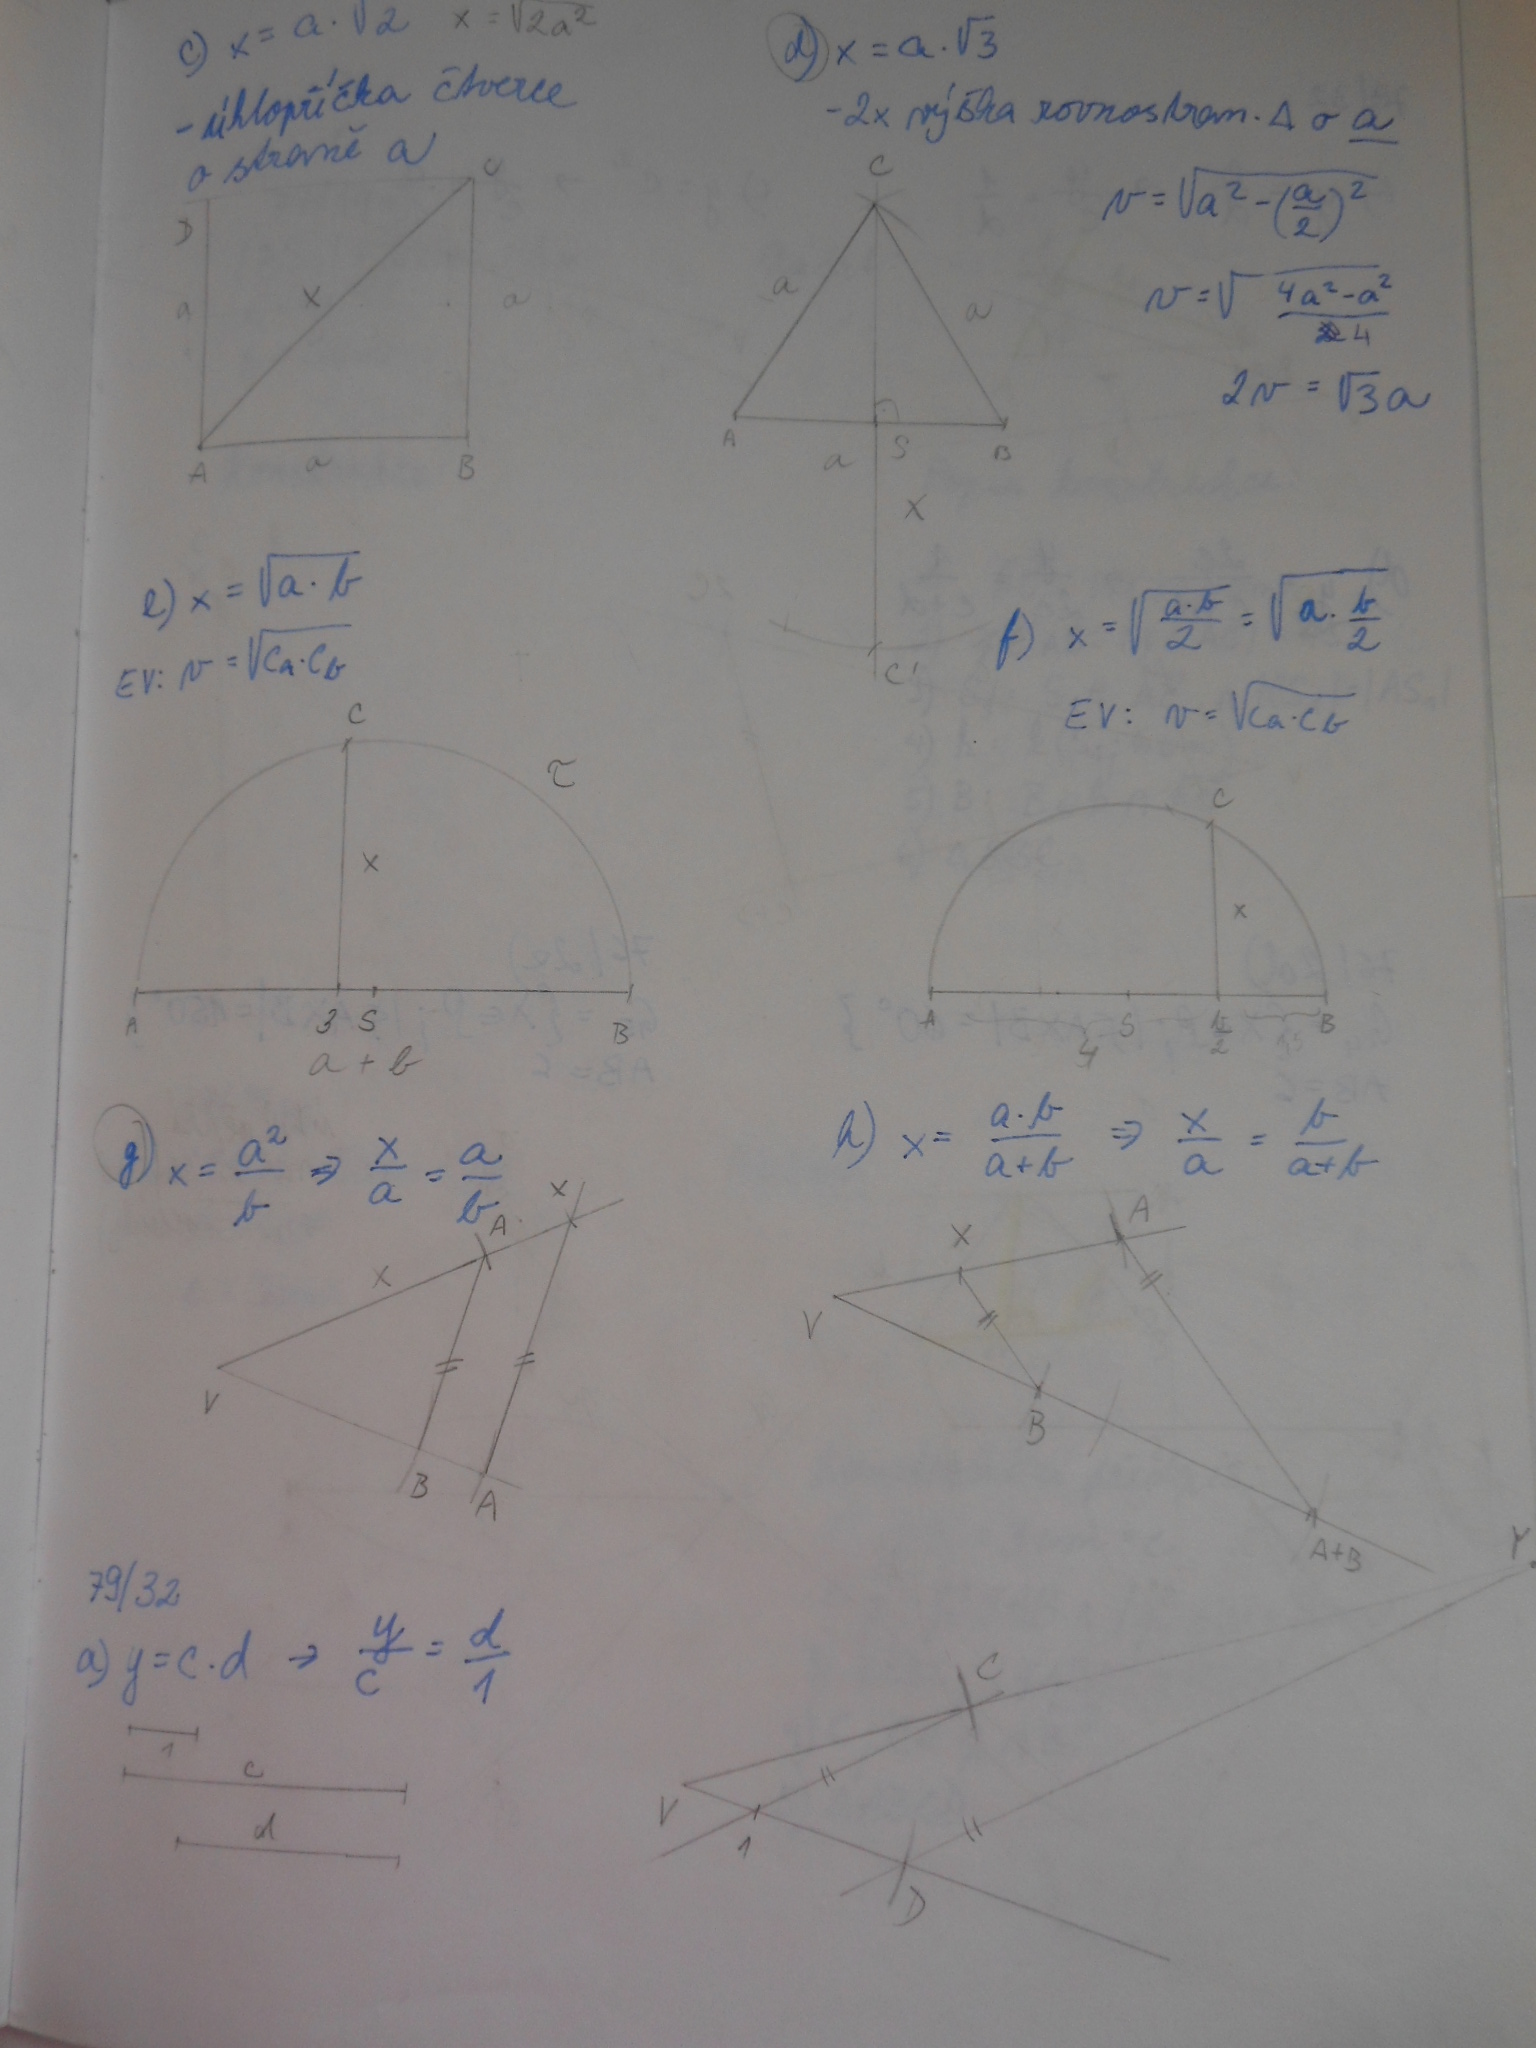 c) x = a·√2 x = √2a²
- úhlopříčka čtverce
o straně a
C
D
a
x
a
A
a
B
d) x = a·√3
-2x výška rovnostran. Δ o a
C
v = √a² - (a/2)²
a
a
v = √ 4a² - a² / 4
2v = √3 a
A
a
S
B
x
C'
e) x = √a·b
EV: v = √ca·cb
C
τ
x
A
3
S
B
a + b
f) x = √a·b/2 = √a·b/2
EV: v = √ca·cb
C
x
A
4
S
B
g) x = a²/b ⇒ x/a = a/b
x
A
x
V
B
A
h) x = a·b/a+b ⇒ x/a = b/a+b
X
A
V
B
A+B
79/32
a) y = c·d → y/c = d/1
1
c
d
Y
C
V
1
D